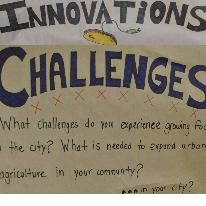 INNOVATIONS
CHALLENGES
What challenges do you experience growing
the city? What is needed to expand urban
agriculture in your community?
... in your city?